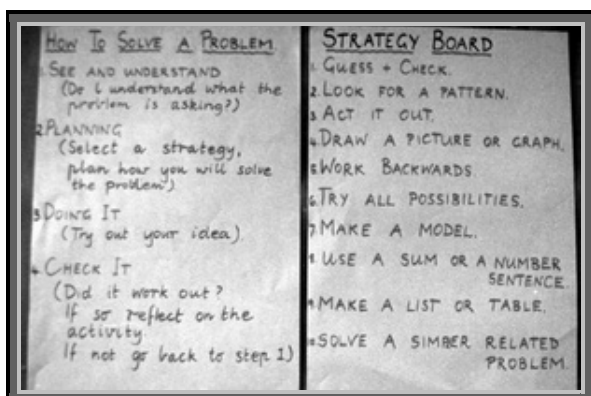 HOW TO SOLVE A PROBLEM
1. SEE AND UNDERSTAND
(Do I understand what the
problem is asking?)
2. PLANNING
(Select a strategy,
plan how you will solve
the problem)
3 DOING IT
(Try out your idea).
4. CHECK IT
(Did it work out?
If so reflect on the
activity.
If not go back to step 1)
STRATEGY BOARD
1. GUESS + CHECK.
2. LOOK FOR A PATTERN.
3 ACT IT OUT.
4. DRAW A PICTURE OR GRAPH.
5. WORK BACKWARDS
6. TRY ALL POSSIBILITIES.
7. MAKE A MODEL.
8 USE A SUM OR A NUMBER
SENTENCE.
9. MAKE A LIST OR TABLE.
10. SOLVE A SIMBER RELATED
PROBLEM.